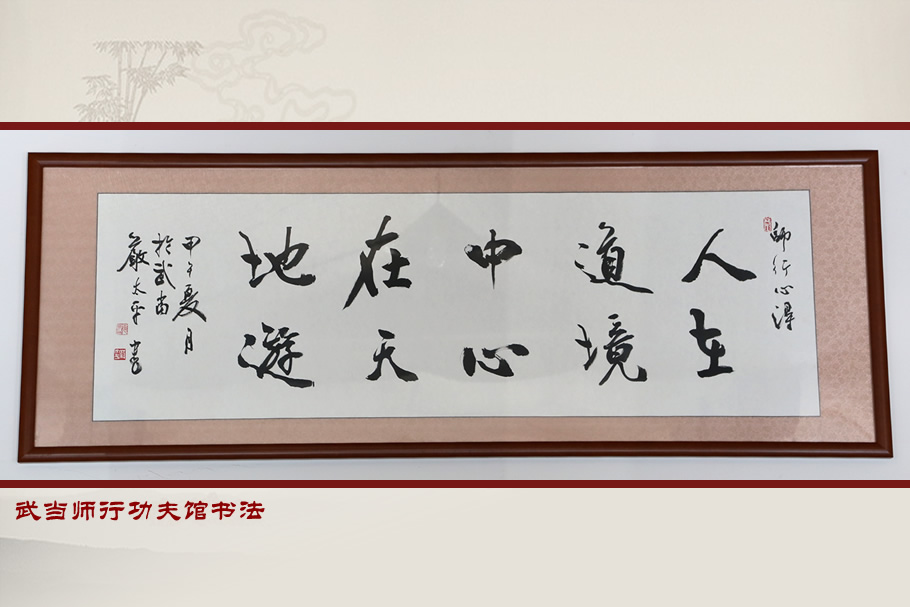 師行心得
人在
道境
中心
在天
地遊
甲午夏月
於武當
嚴太平書
武当师行功夫馆书法